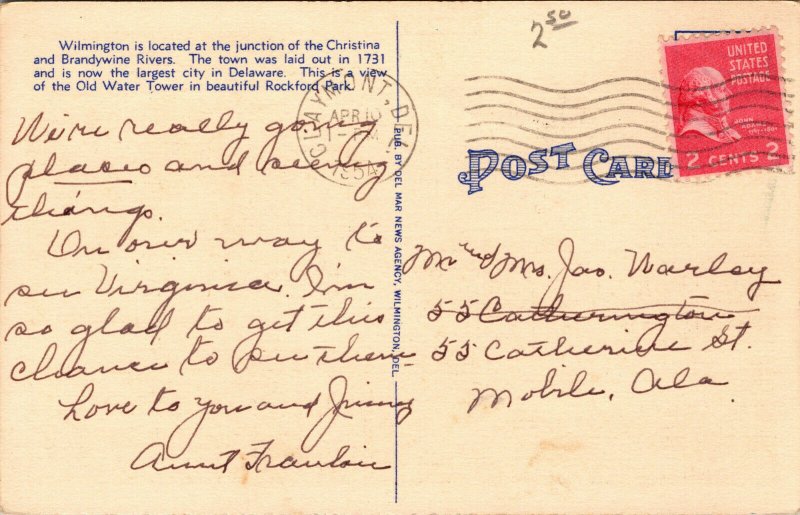 Wilmington is located at the junction of the Christina
and Brandywine Rivers. The town was laid out in 1731
and is now the largest city in Delaware. This is a view
of the Old Water Tower in beautiful Rockford Park.
We're really going
places and seeing
things.
On our way to
see Virginia. I'm
so glad to get this
chance to see them
Love to you and Jimmy
Aunt
PUB. BY DEL MAR NEWS AGENCY, WILMINGTON, DEL.
2 50
CLAYMONT, DEL.
APR 10
1954
UNITED
STATES
POSTAGE
JOHN
ADAMS
2 CENTS 2
POST CARD
Mr and Mrs. Jao. Warley
55 Catherington
55 Catherine St.
Mobile, Ala.